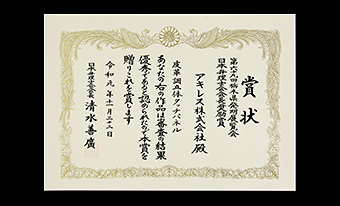 賞状
第六十九回栃木県発明展覧会
日本弁理士会会長奨励賞
アキレス株式会社殿
皮革調立体タッチパネル
あなたの右の作品は審査の結果
優秀であると認められたので本賞を
贈りこれを賞します
令和元年十一月二十三日
日本弁理士会会長 清水善廣